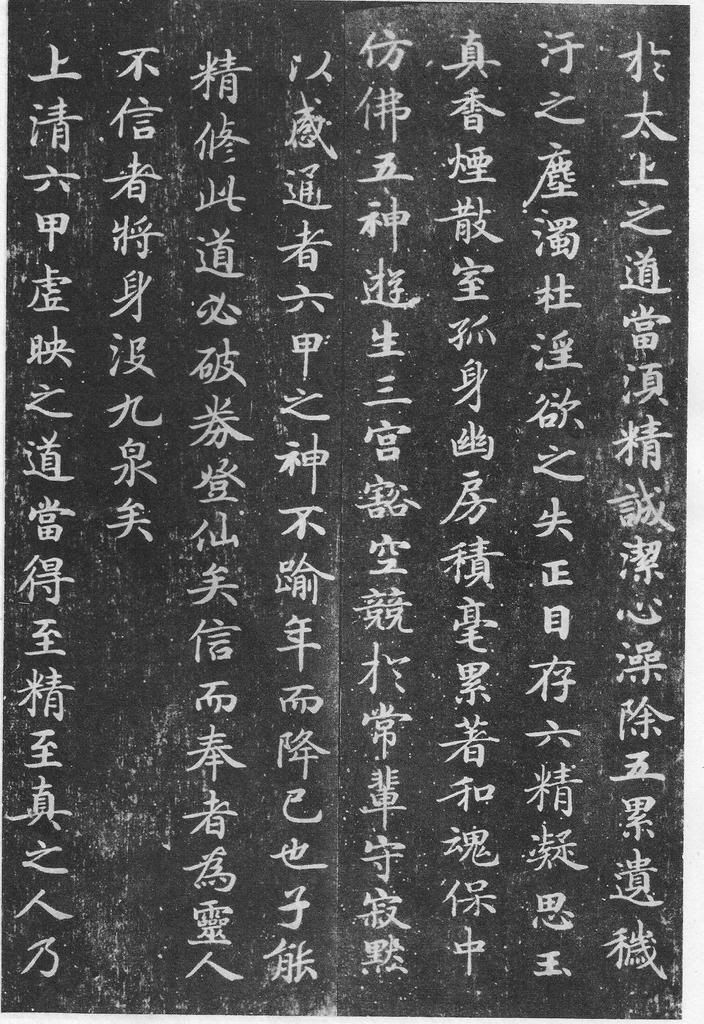 於太上之道當須精誠潔心澡除五累遺穢
汙之塵濁杜淫欲之失正目存六精凝思玉
真香煙散室孤身幽房積毫累著和魂保中
仿佛五神遊生三宮豁空競於常輩守寂默
以感通者六甲之神不踰年而降已也子能
精修此道必破券登仙矣信而奉者為靈人
不信者將身沒九泉矣
上清六甲虛映之道當得至精至真之人乃